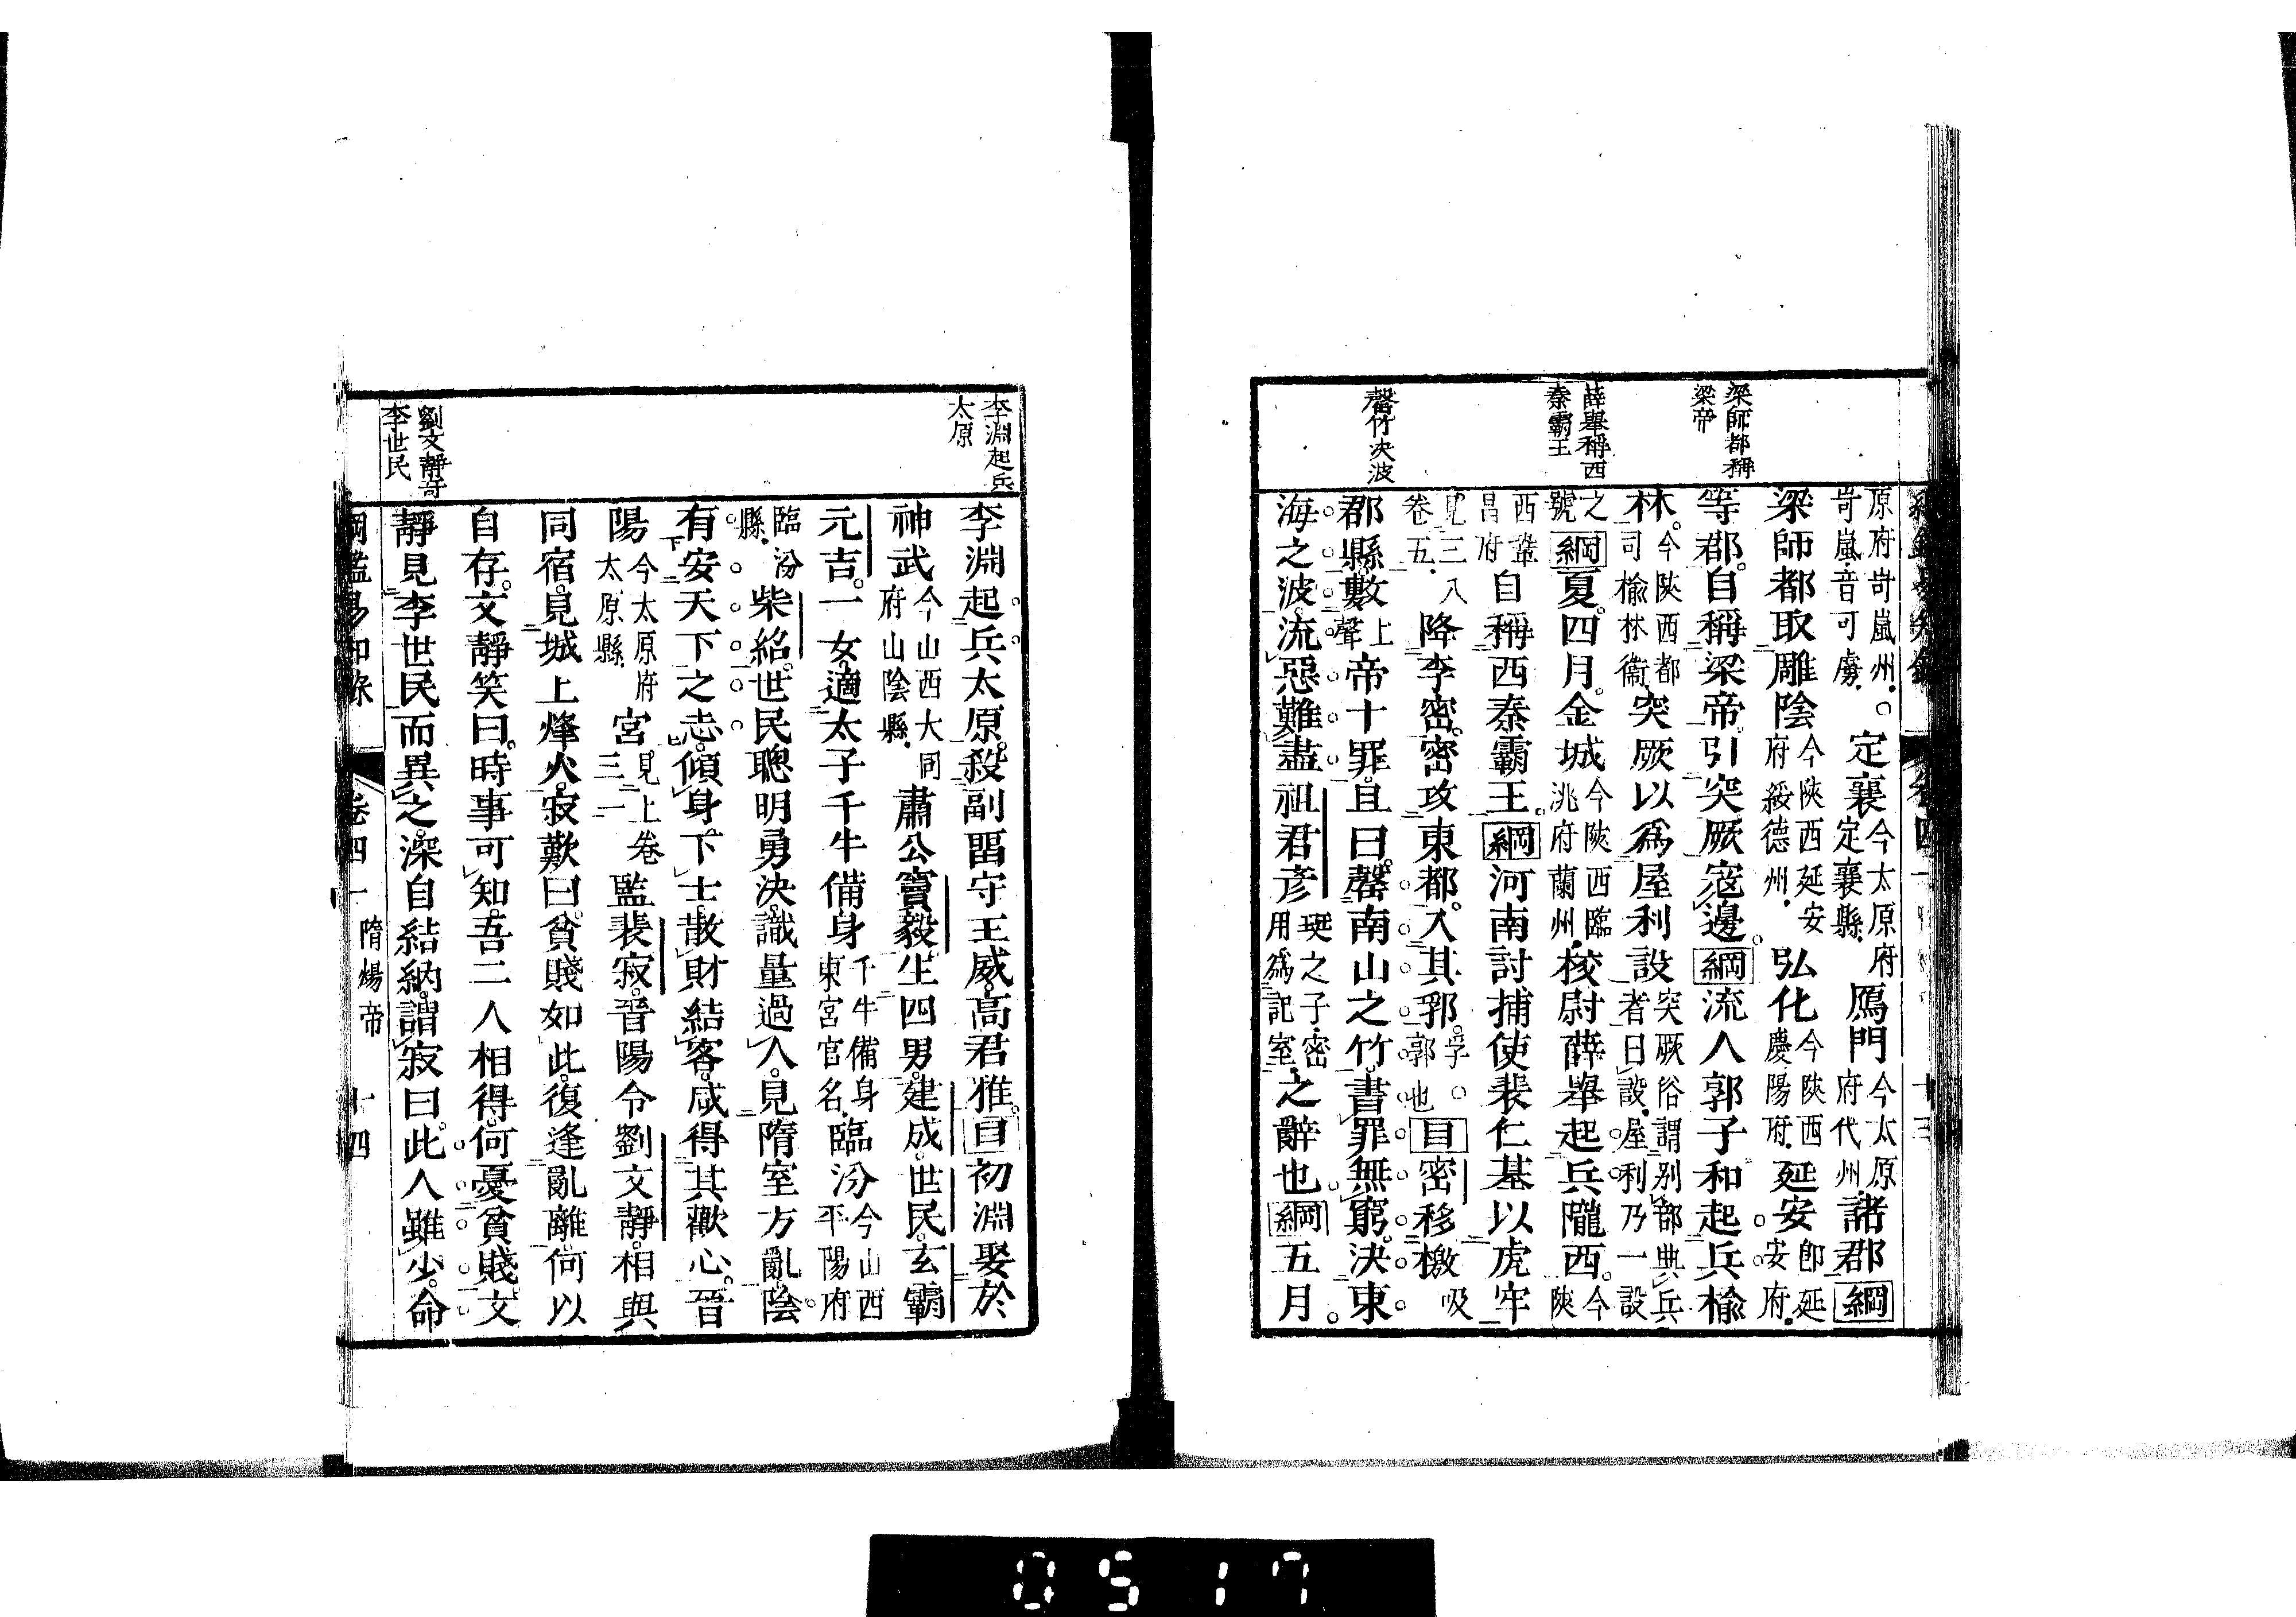 梁師都稱
梁帝
薛舉稱西
秦霸王
罄竹决波
原府岢嵐州○
岢嵐音可婪
定襄
今太原府
定襄縣
鴈門
今太原
府代州
諸郡綱
梁師都取雕陰
今陝西延安
府綏德州
弘化
今陝西
慶陽府
延安
卽延
安府
等郡自稱梁帝引突厥寇邊綱流人郭子和起兵榆
林
今陝西都
司榆林衞
突厥以爲屋利設
突厥俗謂別部典兵
者曰設屋利乃一設
之
號
綱夏四月金城
今陝西臨
洮府蘭州
校尉薛舉起兵隴西
今
陝
西鞏
昌府
自稱西秦霸王綱河南討捕使裴仁基以虎牢
見三八
卷五
降李密密攻東都入其郛
孚○
郭也
目密移檄
吸
郡縣數
上
聲
帝十罪且曰罄南山之竹書罪無窮決東
海之波流惡難盡祖君彥
珽之子密
用爲記室
之辭也綱五月
李淵起兵
太原
劉文靜奇
李世民
李淵起兵太原殺副留守王威高君雅目初淵娶於
神武
今山西大同
府山陰縣
肅公竇毅生四男建成世民玄霸
元吉一女適太子千牛備身
千牛備身
東宮官名
臨汾
今山西
平陽府
臨汾
縣
柴紹世民聰明勇決識量過人見隋室方亂陰
有安天下之志傾身下士散財結客咸得其歡心晉
陽
今太原府
太原縣
宮
見上卷
三一
監裴寂晉陽令劉文靜相與
同宿見城上烽火寂歎曰貧賤如此復逢亂離何以
自存文靜笑曰時事可知吾二人相得何憂貧賤文
靜見李世民而異之深自結納謂寂曰此人雖少命
綱鑑易知錄 卷四一 隋煬帝 十四